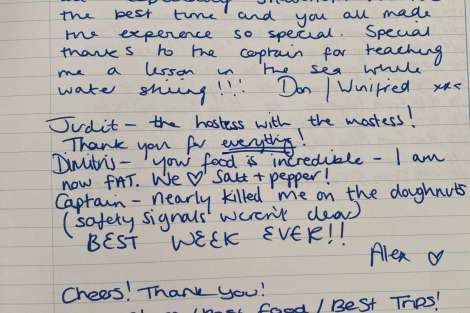 the best time and you all made
the experence so special. Special
thanks to the captain for teaching
me a lesson in the sea while
water skiing!!! Don / Winifred xxx
Judit - the hostess with the mostess!
Thank you for everything!
Dimitris - your food is incredible - I am
now FAT. We ♡ Salt + pepper!
Captain - nearly killed me on the doughnuts
(safety signals weren't clear)
BEST WEEK EVER!!
Alex ♡
Cheers! Thank you!
food / Best Trips!